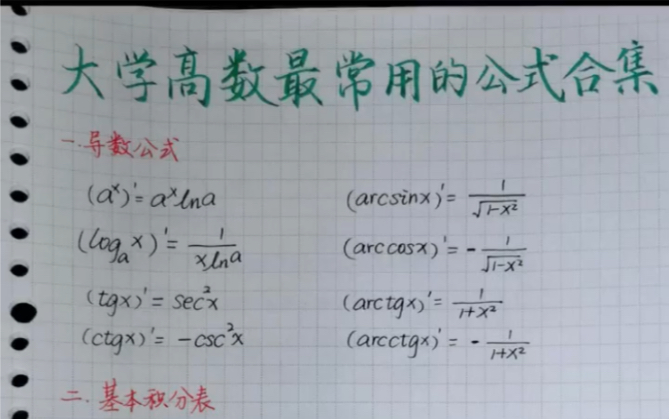 大学高数最常用的公式合集
一.导数公式
(aˣ)'=aˣlna (arcsinx)'=1/√(1-x²)
(logₐx)'=1/(xlna) (arccosx)'=-1/√(1-x²)
(tgx)'=sec²x (arctgx)'=1/(1+x²)
(ctgx)'=-csc²x (arcctgx)'=-1/(1+x²)
二.基本积分表